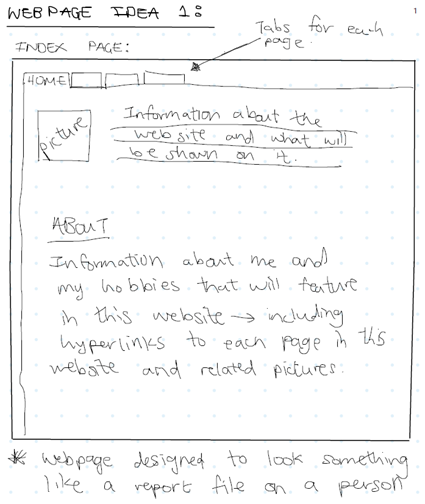 WEBPAGE IDEA 1:
1
Tabs for each
page.
INDEX PAGE:
HOME
picture
Information about the
website and what will
be shown on it.
ABOUT
Information about me and
my hobbies that will feature
in this website → including
hyperlinks to each page in this
website and related pictures.
* webpage designed to look something
like a report file on a person